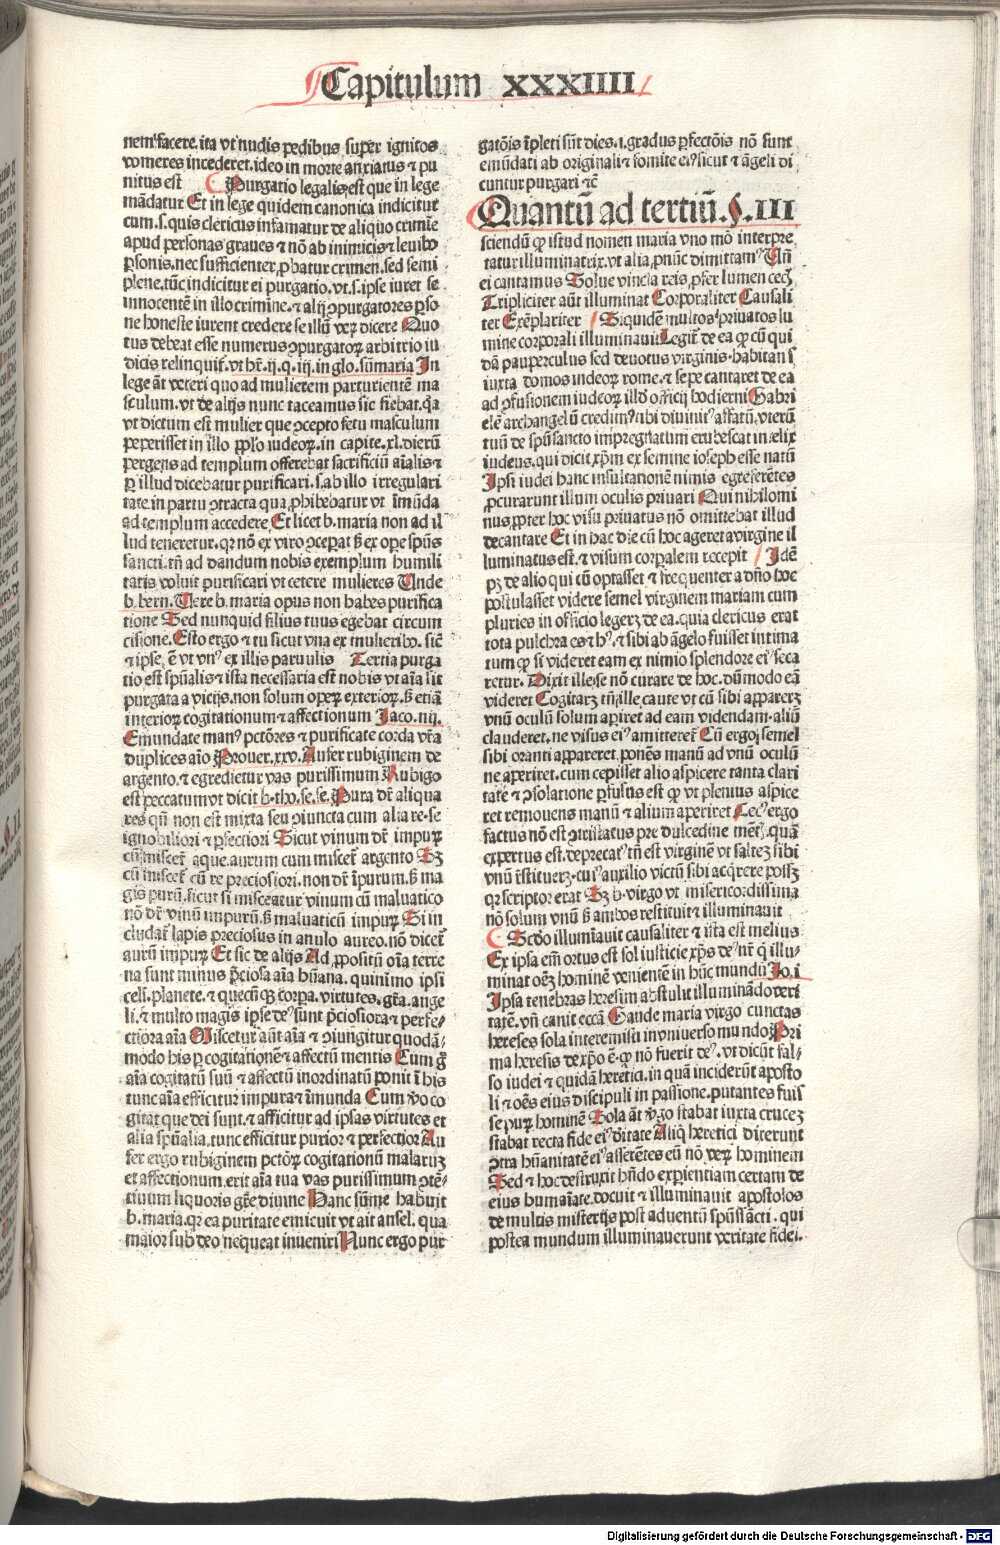 Capitulum XXXIIII
nem facere.ita vt nudis pedibus super ignitos
vomeres incederet.ideo in morte anxiatus & pu
nitus est Purgatio legalis est que in lege
mādatur Et in lege quidem canonica indicitur
cum.s.quis clericus infamatur de aliquo crimīe
apud personas graues & nō ab inimicis & leuibꝰ
ꝑsonis.nec sufficienter ꝓbatur crimen.sed semi
plene.tūc indicitur ei purgatio.vt.s.ipse iuret se
innocentē in illo crimine.& alij ꝯpurgatores ꝑso
ne honeste iurent credere se illū veꝝ dicere Quo
tus debeat esse numerus ꝯpurgatoꝝ arbitrio iu
dicis relinquit̄.vt hr̄.ij.q.iij.in glo.sūmaria In
lege āt veteri quo ad mulierem parturientē ma
sculum.vt de alijs nunc taceamus sic fiebat.q̄a
vt dictum est mulier que ꝯcepto fetu masculum
peperisset in illo pplo iudeoꝝ.in capite.xl.dierū
pergens ad templum offerebat sacrificiū aīalis &
ꝑ illud dicebatur purificari.s.ab illo irregulari
tate in partu ꝯtracta qua ꝓhibebatur vt īmūda
ad templum accedere Et licet b.maria non ad il
lud teneretur.qr nō ex viro ꝯceperat sꝫ ex ope spūs
sancti.tn̄ ad dandum nobis exemplum humili
tatis voluit purificari vt cetere mulieres Unde
b.bern.Uere b.maria opus non habes purifica
tione Sed nunquid filius tuus egebat circum
cisione.Esto ergo & tu sicut vna ex mulieribꝰ.sic̄
& ipse.ē vt vnꝰ ex illis paruulis Tertia purga
tio est spūalis & ista necessaria est nobis vt aīa sit
purgata a vicijs.non solum opeꝝ exterioꝝ.sꝫ etiā
interioꝝ cogitationum & affectionum Jaco.iiij.
Emundate manꝰ pctōres & purificate corda vr̄a
duplices aīo Prouer.xxv.Aufer rubiginem de
argento.& egredietur vas purissimum Rubigo
est peccatum vt dicit b.tho.se.se.Pura dr̄ aliqua
res qn̄ non est mixta seu ꝯiuncta cum alia re.se
ignobiliori & ꝑfectiori Sicut vinum dr̄ impuꝝ
cū miscet̄ aque.aurum cum miscet̄ argento Sꝫ
cū miscet̄ cū re preciosiori.non dr̄ īpurum.sꝫ ma
gis purū.sicut si misceatur vinum cū maluatico
nō dr̄ vinū impurū.sꝫ maluaticū impuꝝ Si in
cludat̄ lapis preciosus in anulo aureo.nō dicet̄
aurū impuꝝ Et sic de alijs Ad ꝓpositū oīa terre
na sunt minus p̄ciosa aīa hūana.quinimo ipsi
celi.planete.& quecūqꝫ corpa.virtutes.gr̄a.ange
li.& multo magis ipse deꝰ sunt p̄ciosiora & perfe-
ctiora aīa Miscetur aūt aīa & ꝯiungitur quodā-
modo his ꝑ cogitationē & affectū mentis Cum g̊
aīa cogitatū suū & affectū inordinatū ponit ī his
tunc aīa efficitur impura & īmunda Cum v̊o co
gitat que dei sunt.& afficitur ad ipsas virtutes et
alia spūalia.tunc efficitur purior & perfectior Au
fer ergo rubiginem pctōꝝ cogitationū malaruꝫ
et affectionum.erit aīa tua vas purissimum ꝯtē-
tiuum liquoris gr̄e diuine Hanc sūme habuit
b.maria.qr ea puritate emicuit vt ait ansel.qua
maior sub deo nequeat inueniri Nunc ergo pur
gatōis īpleti sūt dies.i.gradus ꝑfectōis nō sunt
emūdati ab originali & fomite eiꝰ sicut & āgeli di
cuntur purgari &c̄
Quantū ad tertiū.§.III
sciendū ꝙ istud nomen maria vno mō interpre
tatur illuminatrix.vt alia ꝓnūc dimittamꝰ Un̄
ei cantamus Solue vincla reis ꝓfer lumen cecꝭ
Tripliciter aūt illuminat Corporaliter Causali
ter Exēplariter Siquidē multos priuatos lu
mine corporali illuminauit Legit̄ de ea ꝙ cū qui
dā pauperculus sed deuotus virginis habitans
iuxta domos iudeoꝝ rome.& sepe cantaret de ea
ad ꝯfusionem iudeoꝝ illd̄ officij hodierni Gabri
elē archangelū credimꝰ tibi diuinitꝰ affatū.vterū
tuū de spū sancto impregnatum erubescat infelix
iudeus.qui dicit xp̄m ex semine ioseph esse natū
Ipsi iudei hanc insultationē nimis egre ferētes
ꝓcurarunt illum oculis priuari Qui nihilomi
nus ꝓpter hoc visu priuatus nō omittebat illud
decantare Et in hac die cū hoc ageret a virgine il
luminatus est.& visum corpalem recepit Idē
pꝫ de alio qui cū optasset & frequenter a dn̄o hoc
postulasset videre semel virginem mariam cum
pluries in officio legerꝫ de ea.quia clericus erat
tota pulchra es &cꝰ.& sibi ab āgelo fuisset intima
tum ꝙ si videret eam ex nimio splendore eiꝰ seca
retur.Dixit ille se nō curare de hoc.dūmodo eā
videret Cogitarꝫ tn̄ ille caute vt cū sibi apparerꝫ
vnū oculū solum aperiret ad eam videndam.aliū
clauderet.ne visus eiꝰ amitteret̄ Cū ergo semel
sibi oranti appareret.ponēs manū ad vnū oculū
ne aperiret.cum cepisset alio aspicere tanta clari
tatē & ꝯsolatione ꝑfusus est ꝙ vt plenius aspice
ret remouens manū & alium aperiret Cecꝰ ergo
factus nō est ꝯtristatus pre dulcedine mētꝭ.quā
expertus est.deprecatꝰ tn̄ est virginē vt salteꝫ sibi
vnū īstitueret.cuiꝰ auxilio victū sibi acq̄rere possꝫ
qr scriptor erat Sꝫ b.virgo vt misericordissima
nō solum vnū sꝫ ambos restituit & illuminauit
Scdo illumīauit causaliter & ista est melius
Ex ipsa em̄ ortus est sol iusticie xp̄s deꝰ nr̄ q̄ illu-
minat oēꝫ hominē venientē in hūc mundū Jo.i
Ipsa tenebras heresim abstulit illuminādo veri
tatē.vn̄ canit eccā Gaude maria virgo cunctas
hereses sola interemisti in vniuerso mundo Pri
ma heresis de xp̄o ē.ꝙ nō fuerit deꝰ.vt dicūt fal-
so iudei & quidā heretici.in quā inciderūt aposto
li & oēs eius discipuli in passione.putantes fuis
se puꝝ hominē Sola āt v̊go stabat iuxta cruceꝫ
stabat recta fide eiꝰ ditate Aliq̄ heretici dixerunt
ꝯtra hūanitatē eiꝰ asserētes eū nō veꝝ hominem
Sed & hoc destruxit hn̄do expientiam certam de
eius humaītate.docuit & illuminauit apostolos
de multis misterijs post aduentū spūssācti.qui
postea mundum illuminauerunt veritate fidei.
Digitalisierung gefördert durch die Deutsche Forschungsgemeinschaft - DFG